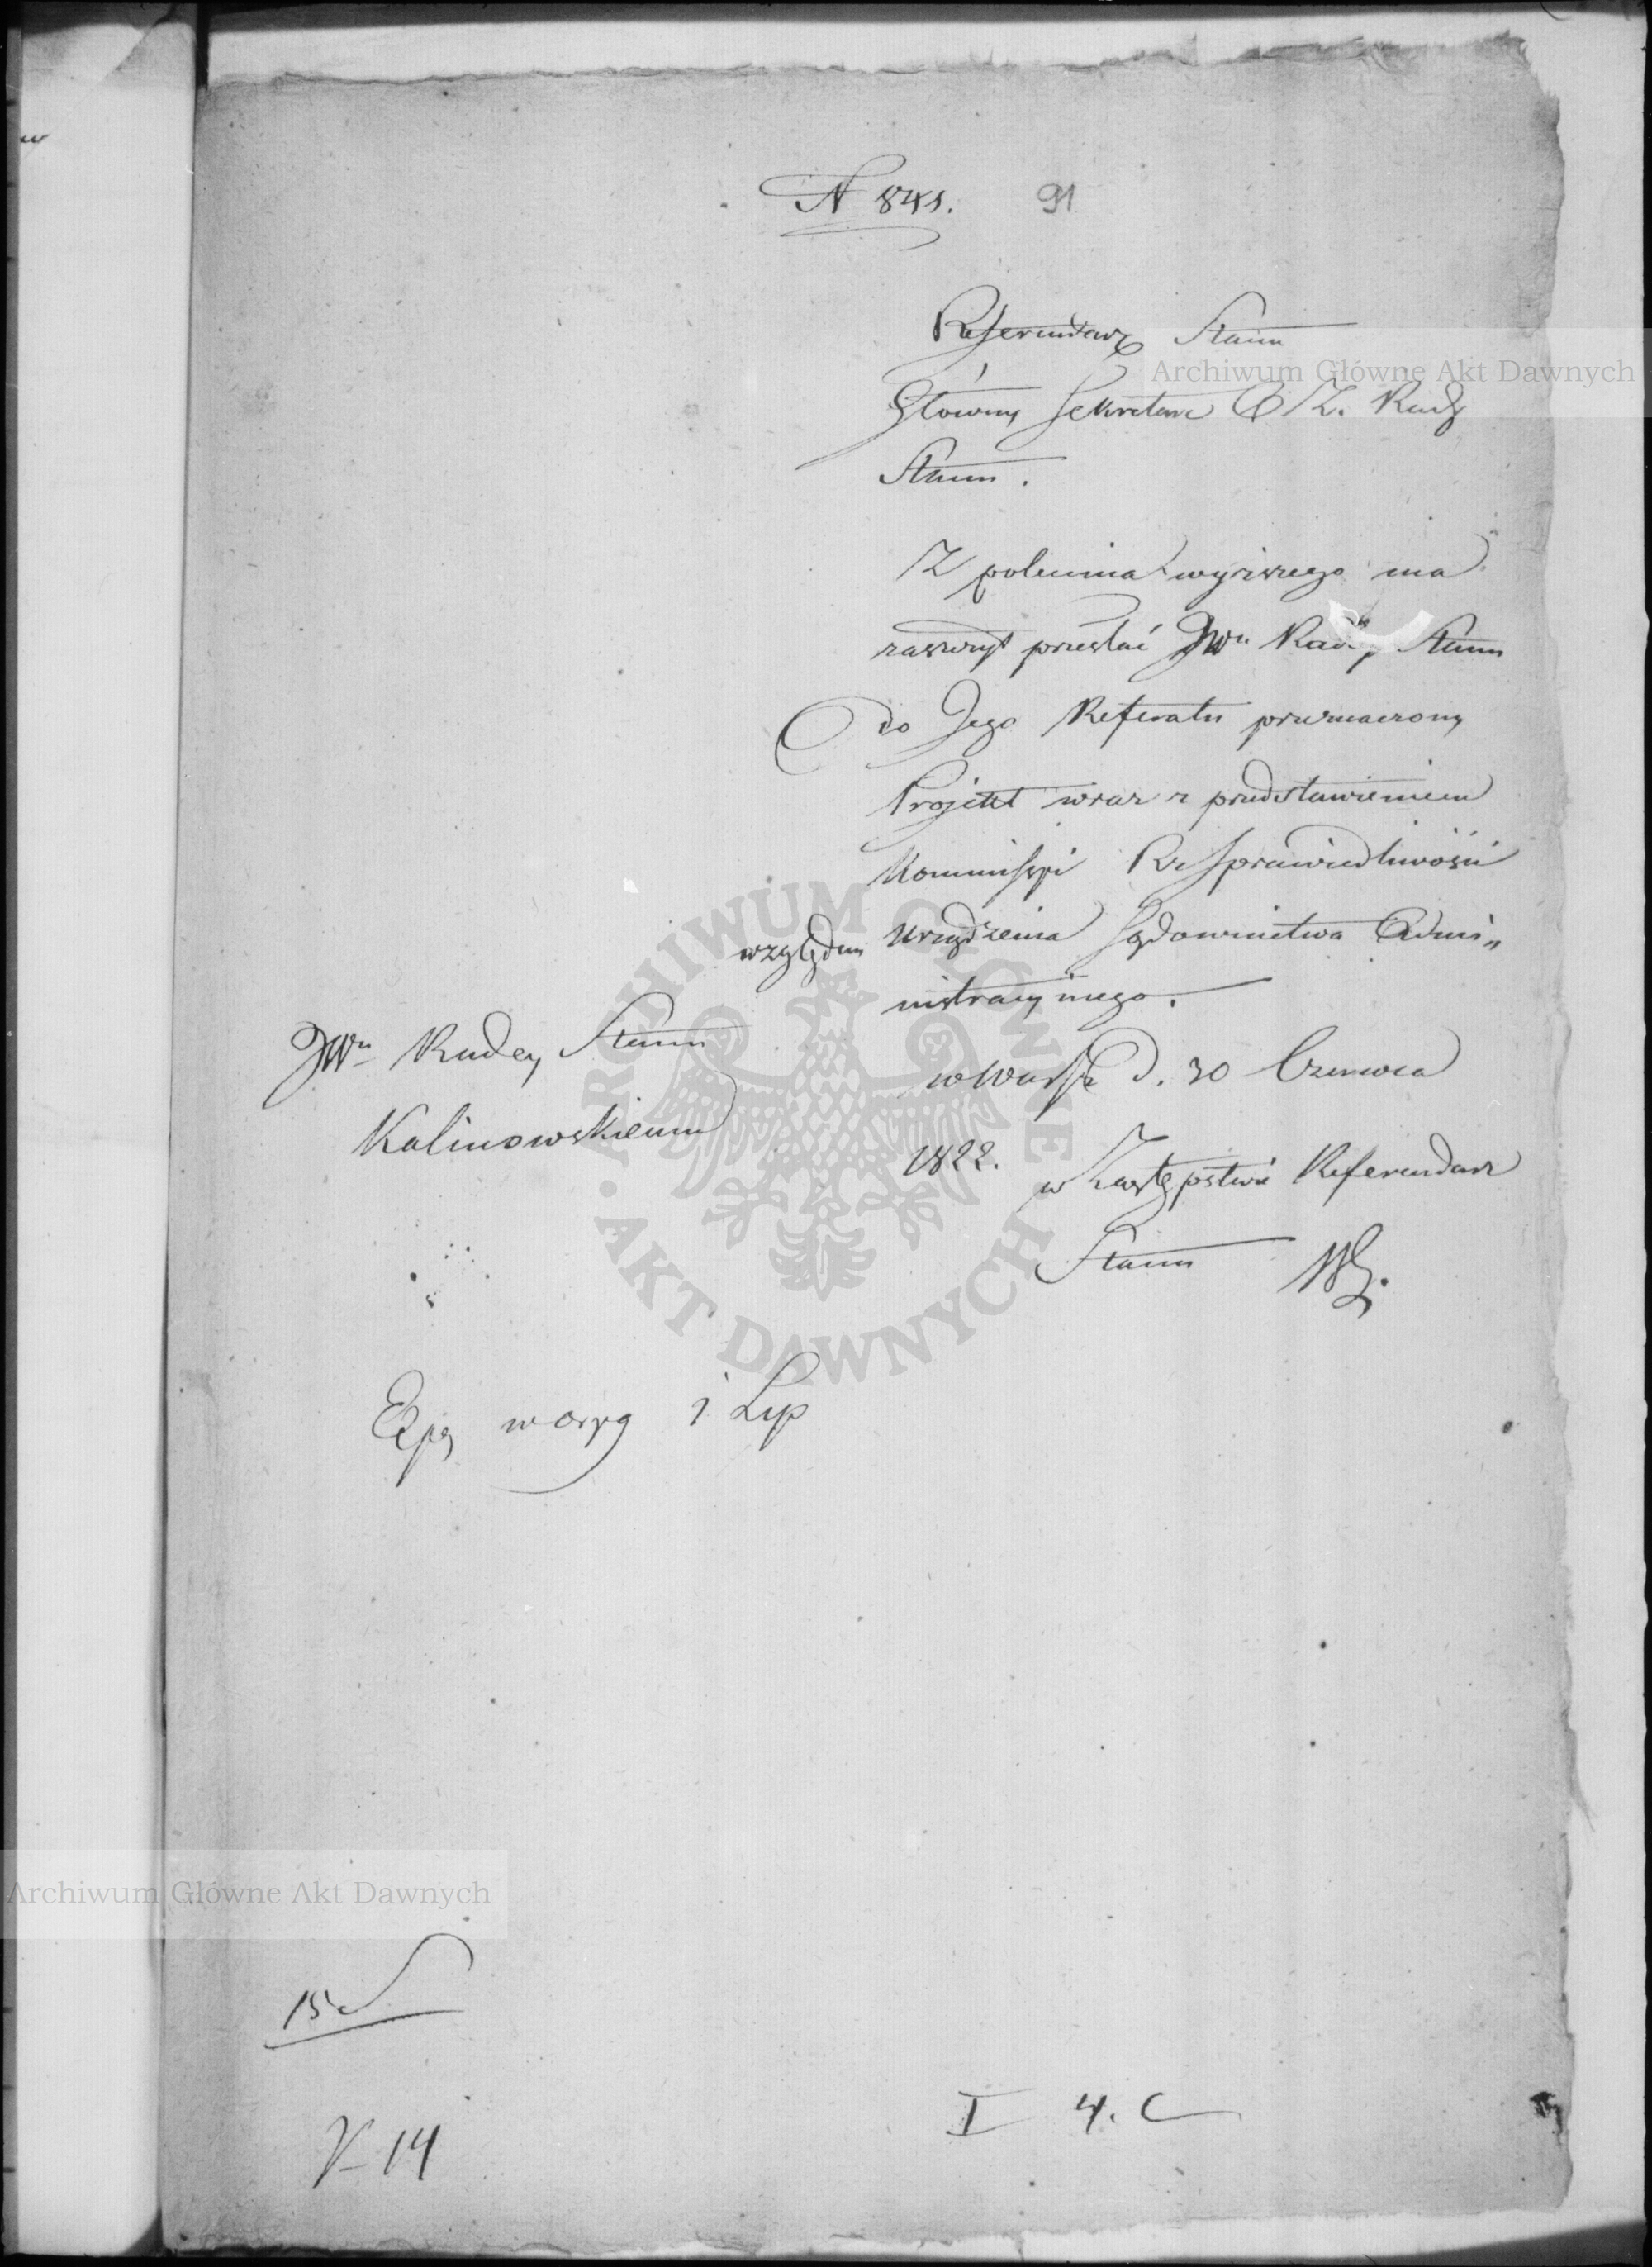 N 841. 91
Referendarz Stanu
Główny Sekretarz O Z. Rady
Stanu.
Z polecenia wyższego ma
zaszczyt przesłać JWu Radcy Stanu
do Jego Referatu przeznaczony
Projekt wraz z przedstawieniem
Kommissyi Rz Sprawiedliwości
względem urządzenia Sądownictwa Admi„
nistracyjnego.
JWu Radcy Stanu
Kalinowskiemu
w Warsz d. 30 Czerwca
1822.
w Zastępstwie Referendarz
Stanu
Exp w oryg 1 Lip
15
V-14
I 4. C
Archiwum Główne Akt Dawnych
Archiwum Główne Akt Dawnych
ARCHIWUM GŁÓWNE AKT DAWNYCH